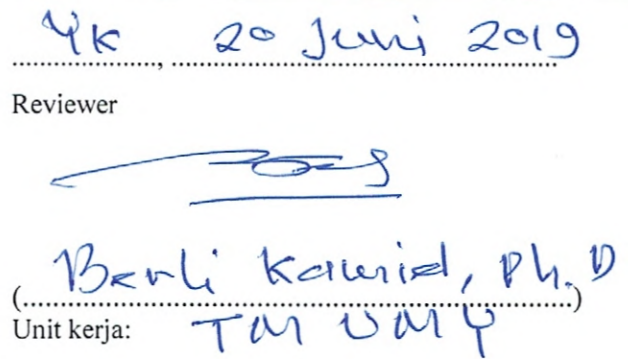 YK, 20 Juni 2019
Reviewer
(Berli Kamiel, Ph.D)
Unit kerja: TM UMY